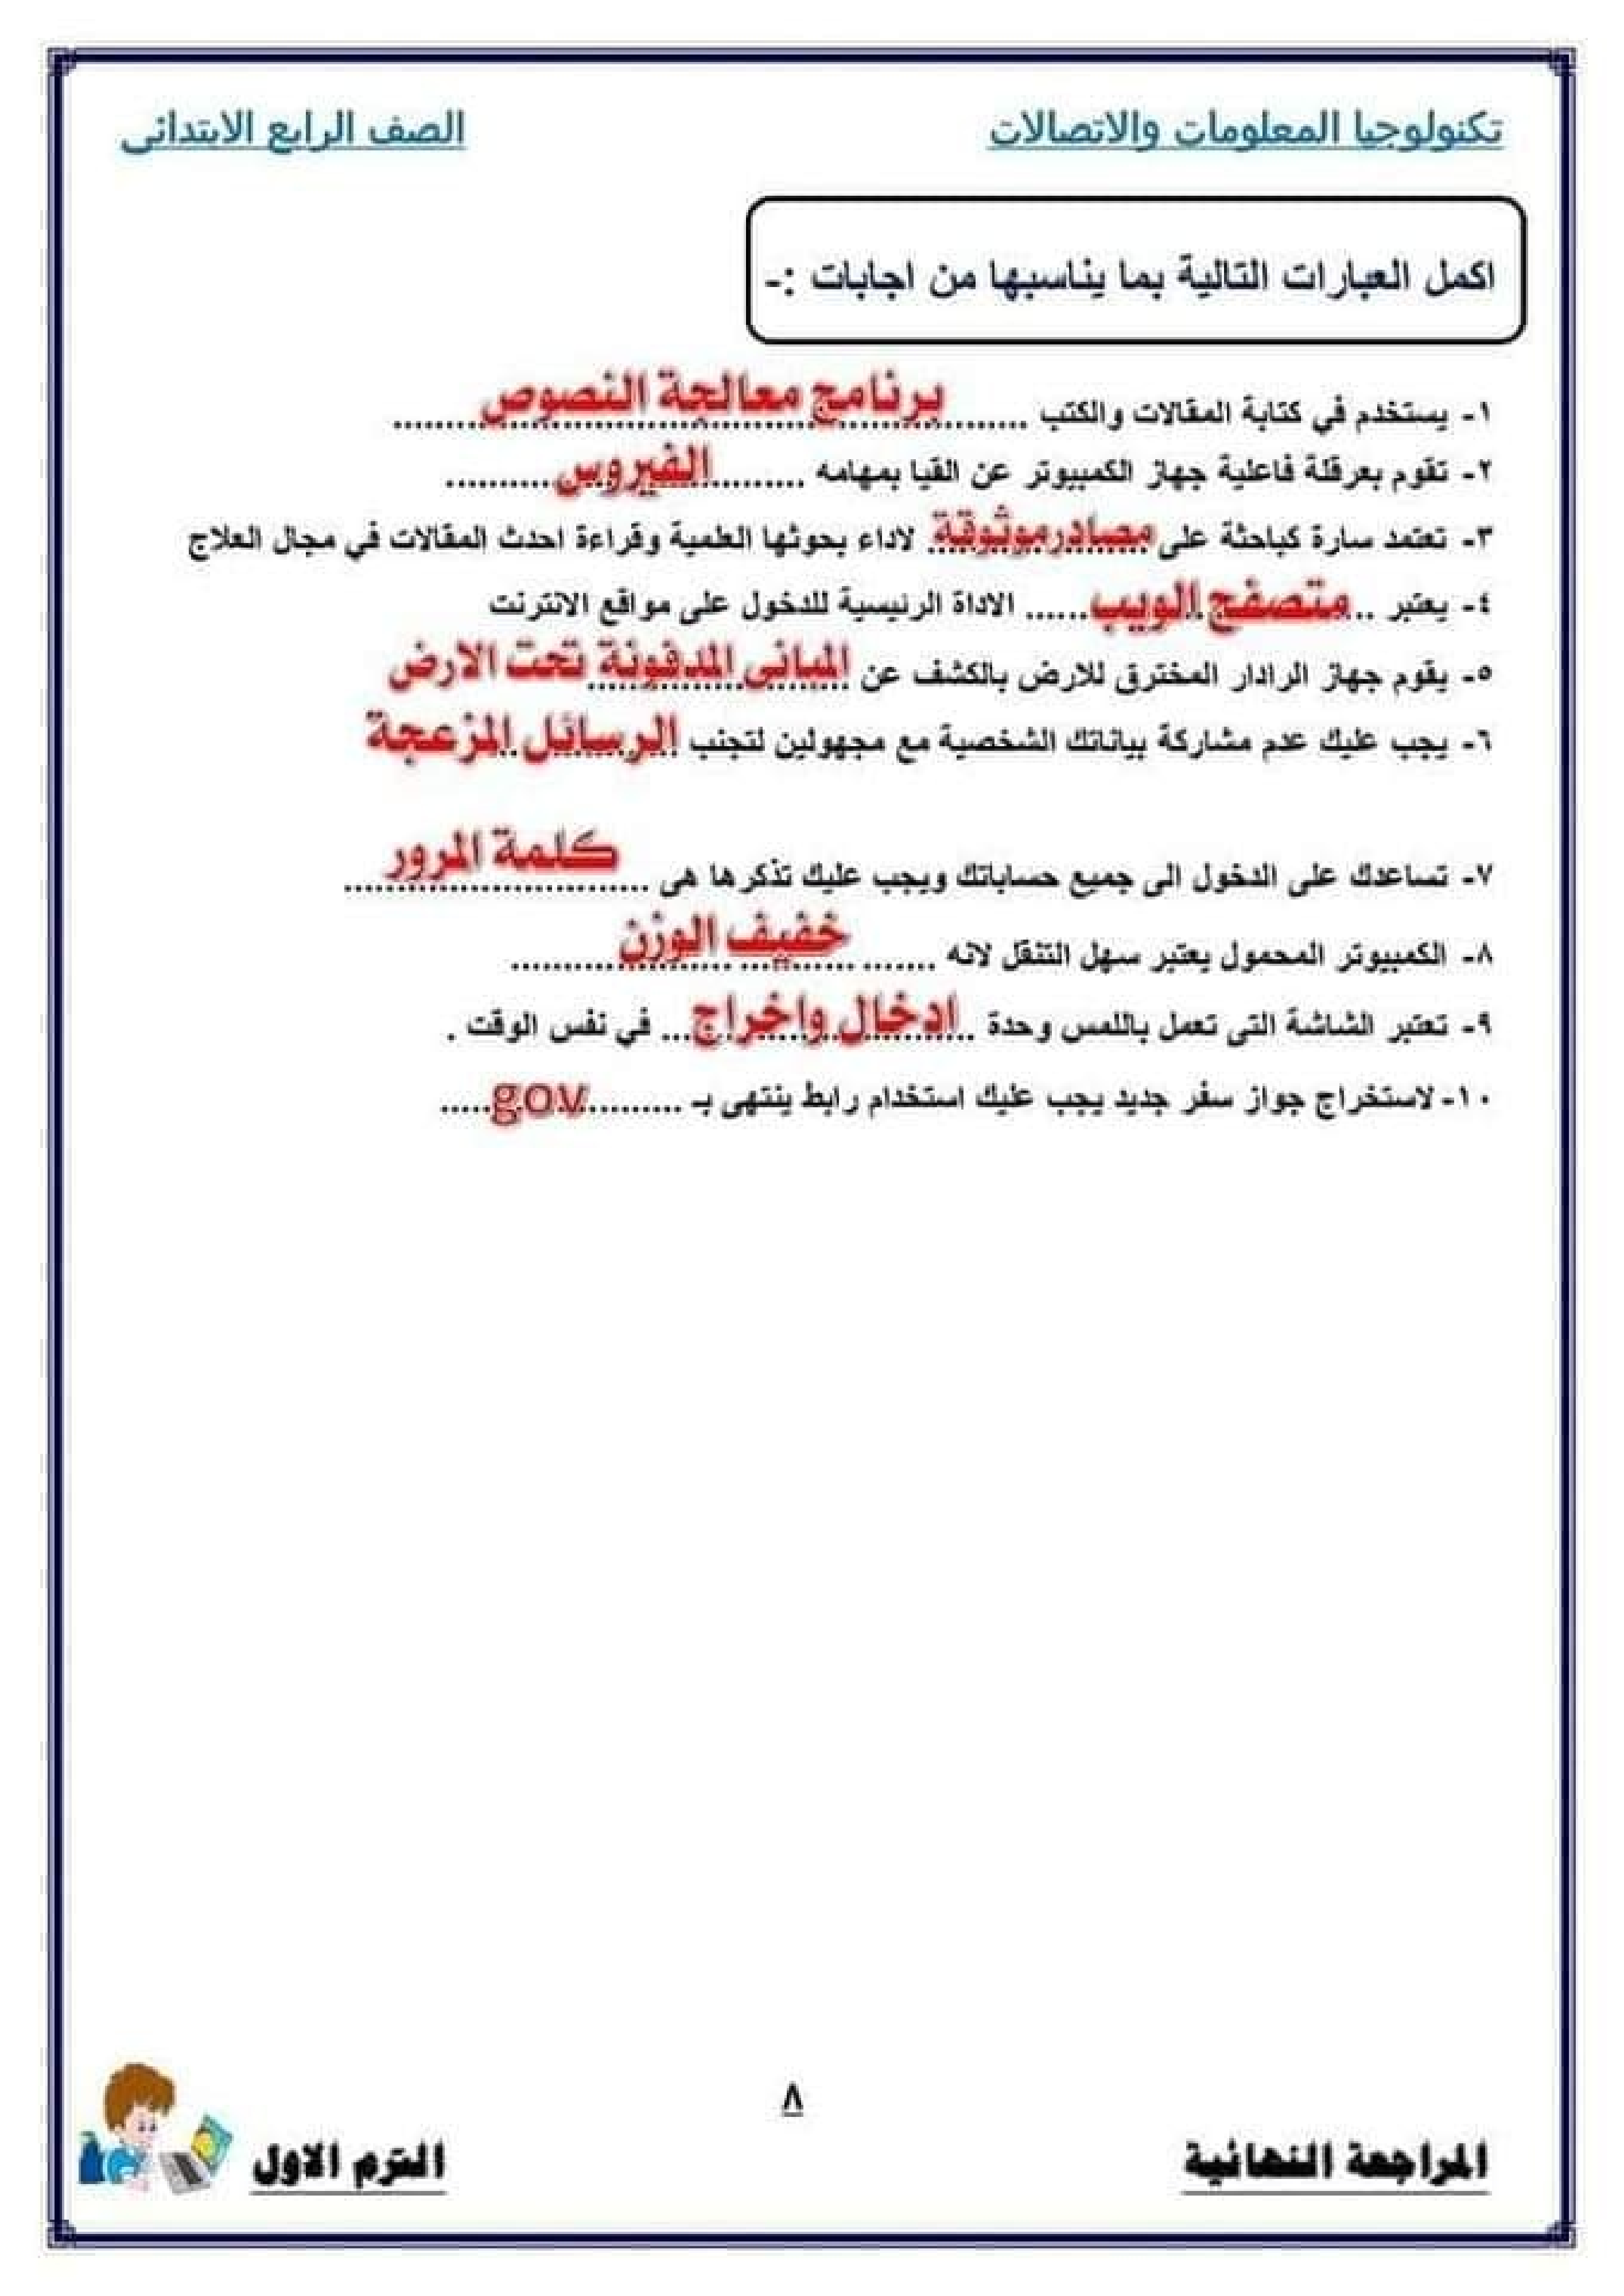 تكنولوجيا المعلومات والاتصالات
الصف الرابع الابتدائى
اكمل العبارات التالية بما يناسبها من اجابات :-
١- يستخدم في كتابة المقالات والكتب ........ برنامج معالجة النصوص ........
٢- تقوم بعرقلة فاعلية جهاز الكمبيوتر عن القيا بمهامه .........الفيروس..........
٣- تعتمد سارة كباحثة على مصادر موثوقة لاداء بحوثها العلمية وقراءة احدث المقالات في مجال العلاج
٤- يعتبر ..متصفح الويب...... الاداة الرئيسية للدخول على مواقع الانترنت
٥- يقوم جهاز الرادار المخترق للارض بالكشف عن المبانى المدفونة تحت الارض
٦- يجب عليك عدم مشاركة بياناتك الشخصية مع مجهولين لتجنب الرسائل المزعجة
٧- تساعدك على الدخول الى جميع حساباتك ويجب عليك تذكرها هى ... كلمة المرور ....
٨- الكمبيوتر المحمول يعتبر سهل التنقل لانه ....... خفيف الوزن ........
٩- تعتبر الشاشة التى تعمل باللمس وحدة ..ادخال واخراج... في نفس الوقت .
١٠- لاستخراج جواز سفر جديد يجب عليك استخدام رابط ينتهى بـ .........gov.....
٨
المراجعة النهائية
الترم الاول